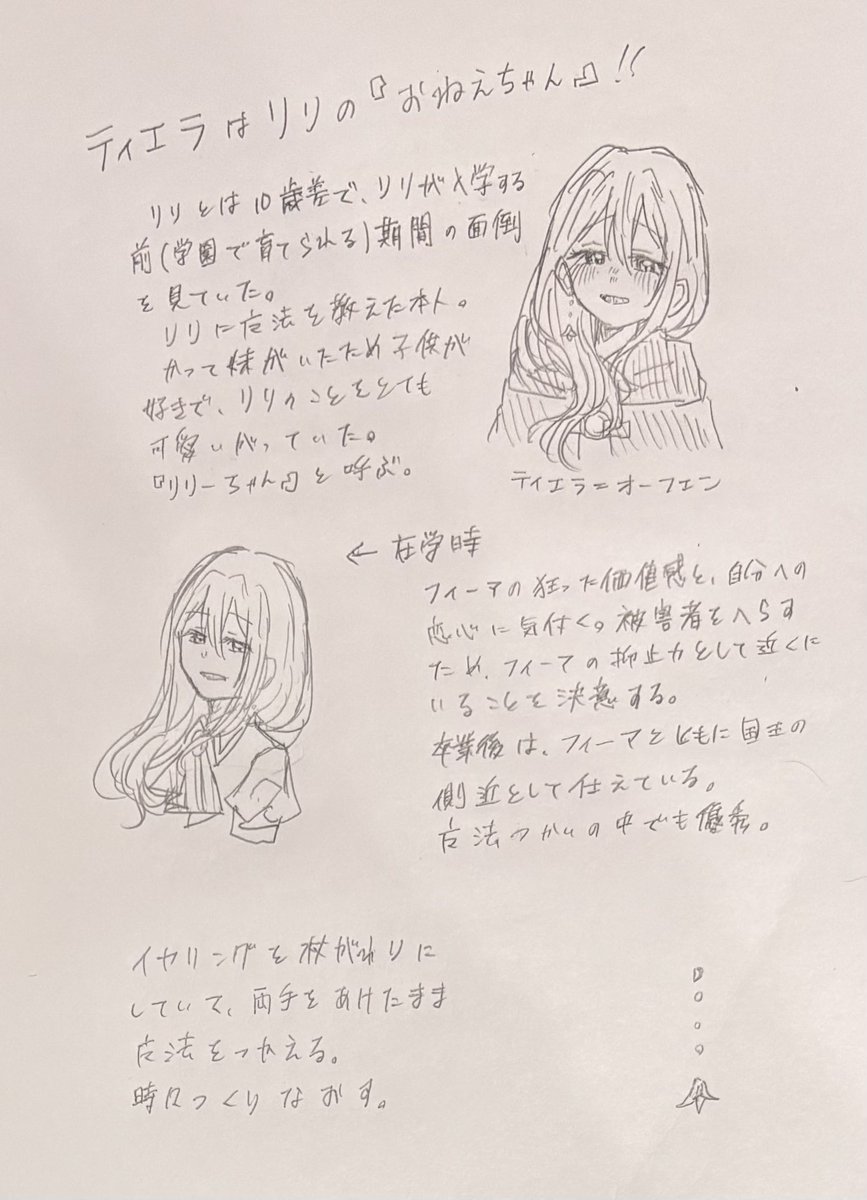 ティエラはリリの『おねえちゃん』!!
リリとは10歳差で、リリが入学する
前(学園で育てられる)期間の面倒
を見ていた。
リリに广法を教えた本人。
かつて妹がいたため子供が
好きで、リリのことをとても
可愛いがっていた。
『リリーちゃん』と呼ぶ。
ティエラ=オーフェン
← 在学時
フィーアの狂った価値感と、自分への
恋心に気付く。被害者をへらす
ため、フィーアの抑止力として近くに
いることを決意する。
卒業後は、フィーアとともに国王の
側近として仕えている。
广法つかいの中でも優秀。
イヤリングを杖がわりに
していて、両手をあけたまま
广法をつかえる。
時々つくりなおす。